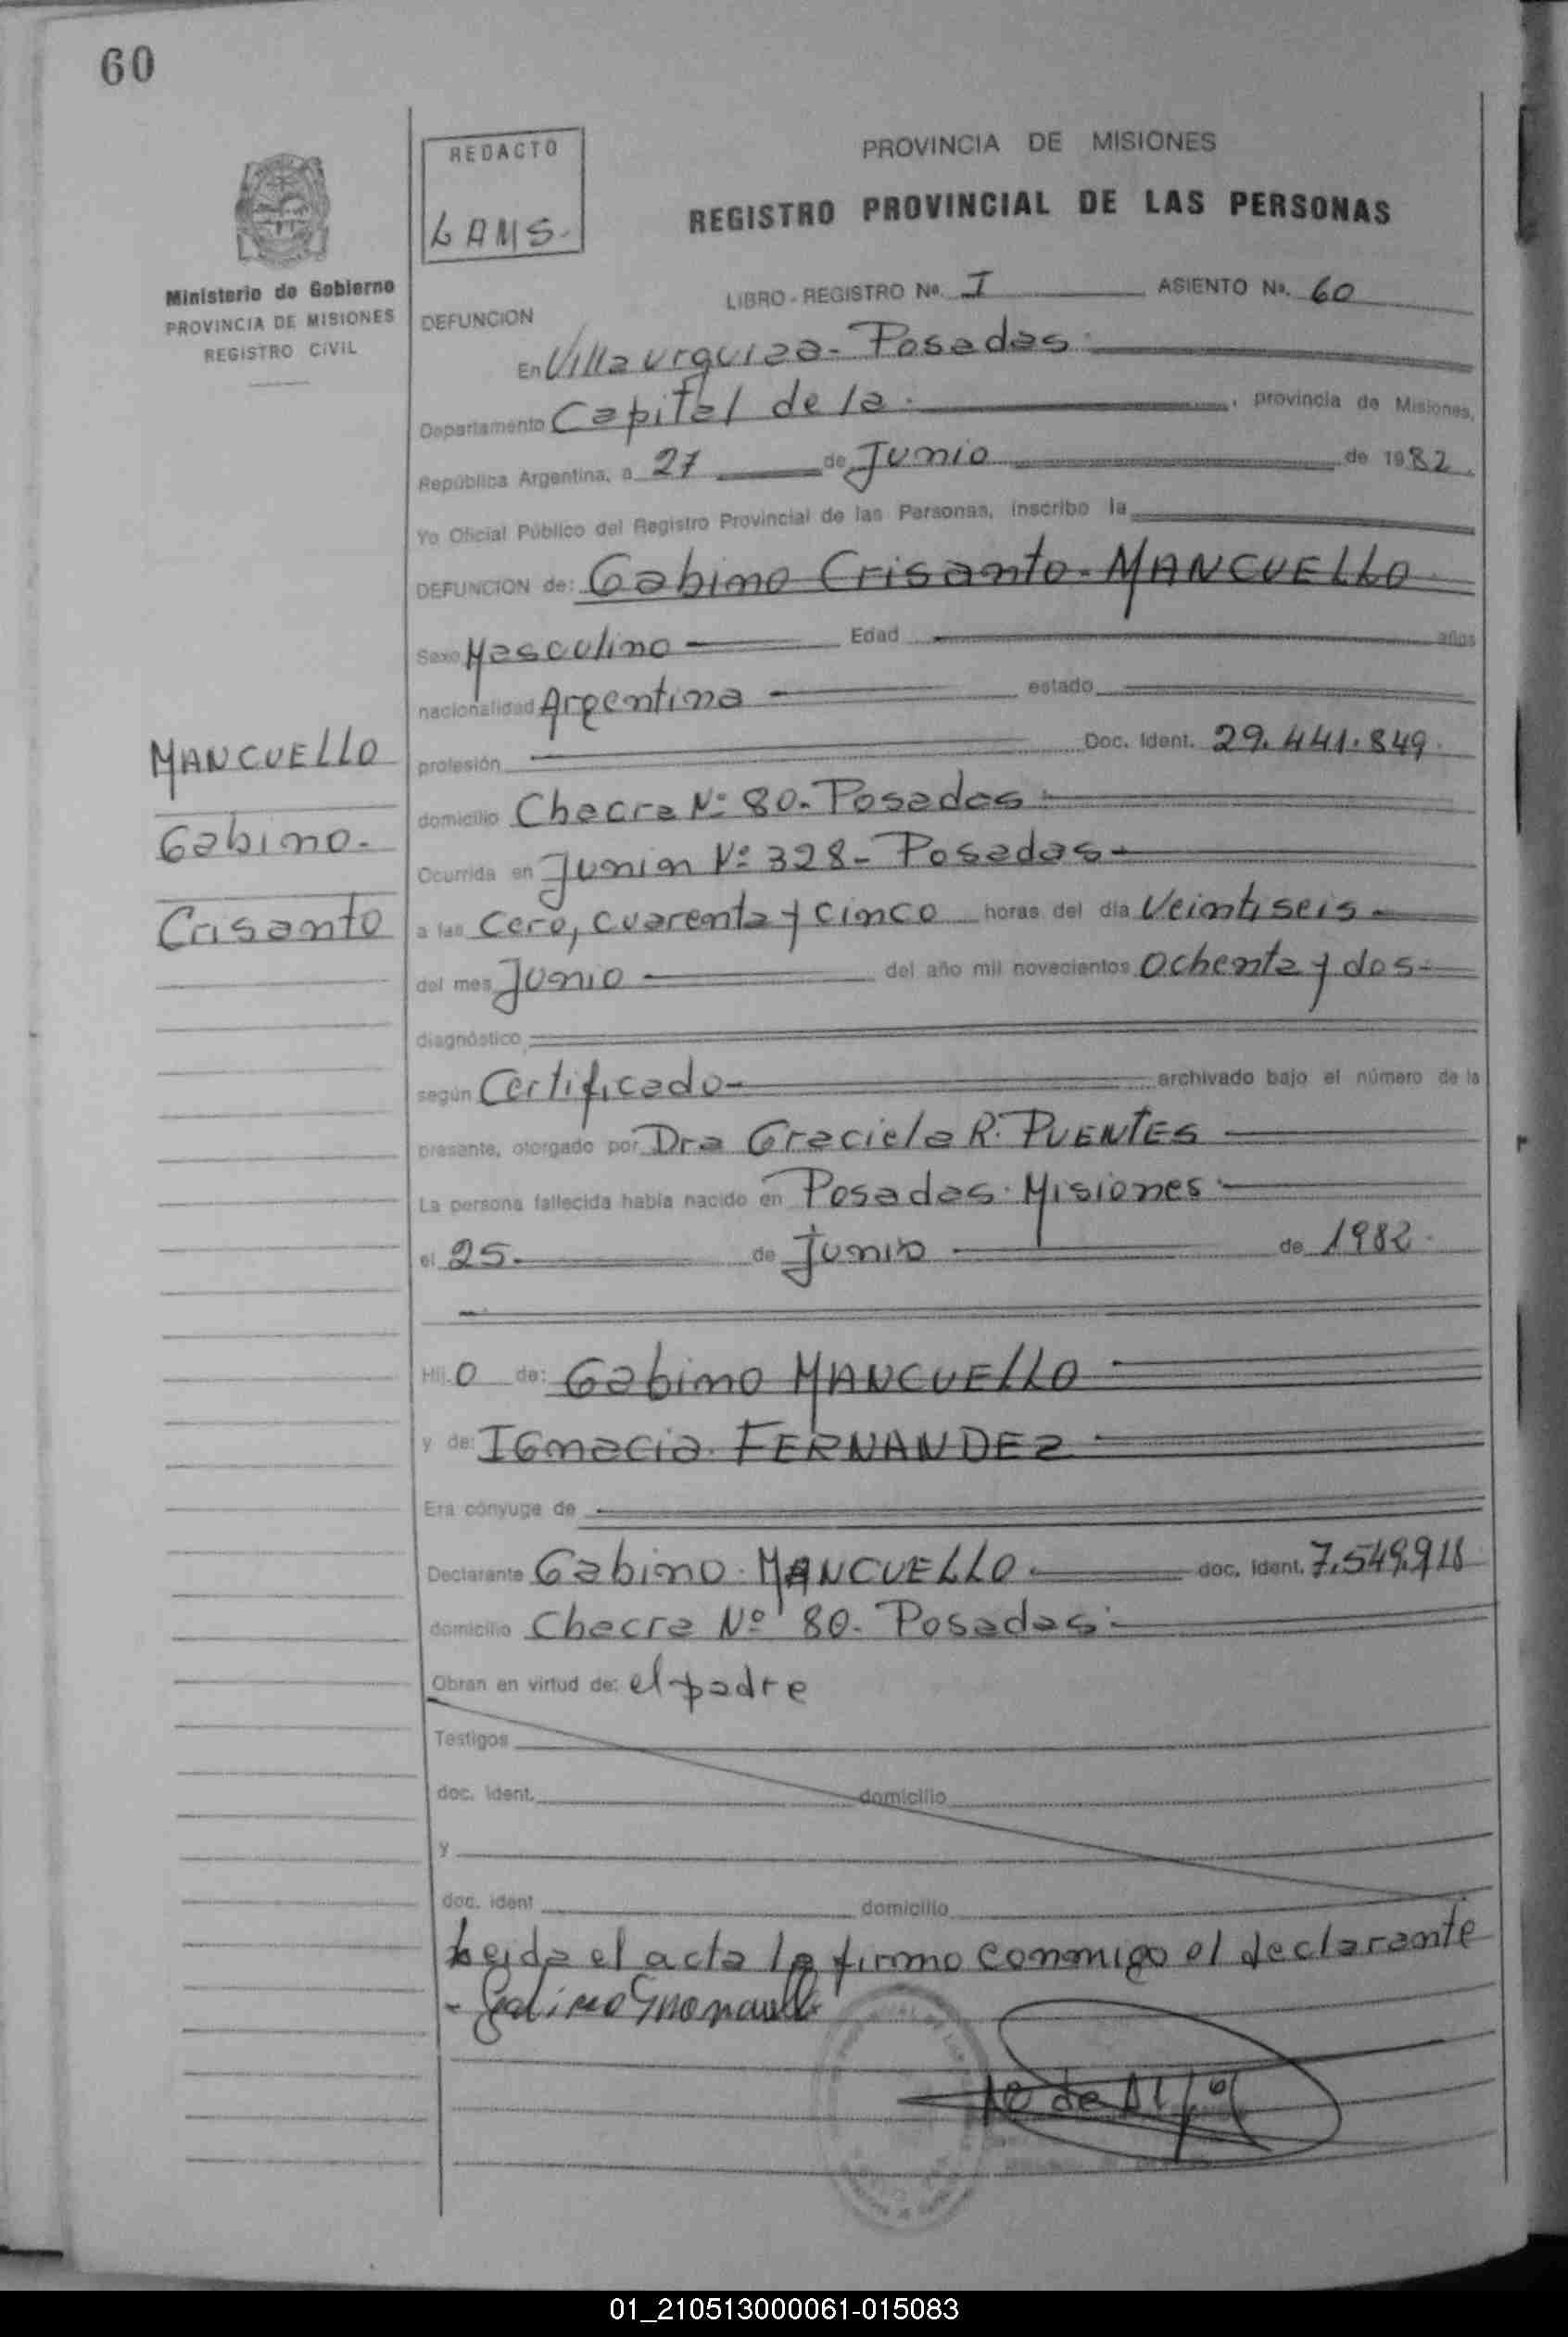 60
REDACTO
LAMS.
PROVINCIA DE MISIONES
REGISTRO PROVINCIAL DE LAS PERSONAS
Ministerio de Gobierno
PROVINCIA DE MISIONES
REGISTRO CIVIL
LIBRO - REGISTRO Nº. I ASIENTO Nº. 60
DEFUNCION
En Villa urquiza - Posadas
Departamento Capital de la provincia de Misiones,
República Argentina, a 27 de Junio de 1982.
Yo Oficial Público del Registro Provincial de las Personas, inscribo la
DEFUNCION de: Gabino Crisanto MANCUELLO
Sexo Masculino Edad años
nacionalidad Argentina estado
MANCUELLO
Gabino.
Crisanto
profesión Doc. Ident. 29.441.849.
domicilio Chacra Nº 80. Posadas
Ocurrida en Junin Nº 328 - Posadas
a las Cero, cuarenta y cinco horas del día Veintiseis
del mes Junio del año mil novecientos Ochenta y dos
diagnóstico
según Certificado archivado bajo el número de la
presente, otorgado por Dra Graciela R. PUENTES
La persona fallecida había nacido en Posadas. Misiones
el 25. de Junio de 1982.
Hij o de: Gabino MANCUELLO
y de: IGnacia FERNANDEZ
Era cónyuge de
Declarante Gabino MANCUELLO doc. Ident. 7.549.918
domicilio Chacra Nº 80. Posadas
Obran en virtud de: el padre
Testigos
doc. Ident. domicilio
y
doc. ident domicilio
Leida el acta la firmo conmigo el declarante
01_210513000061-015083